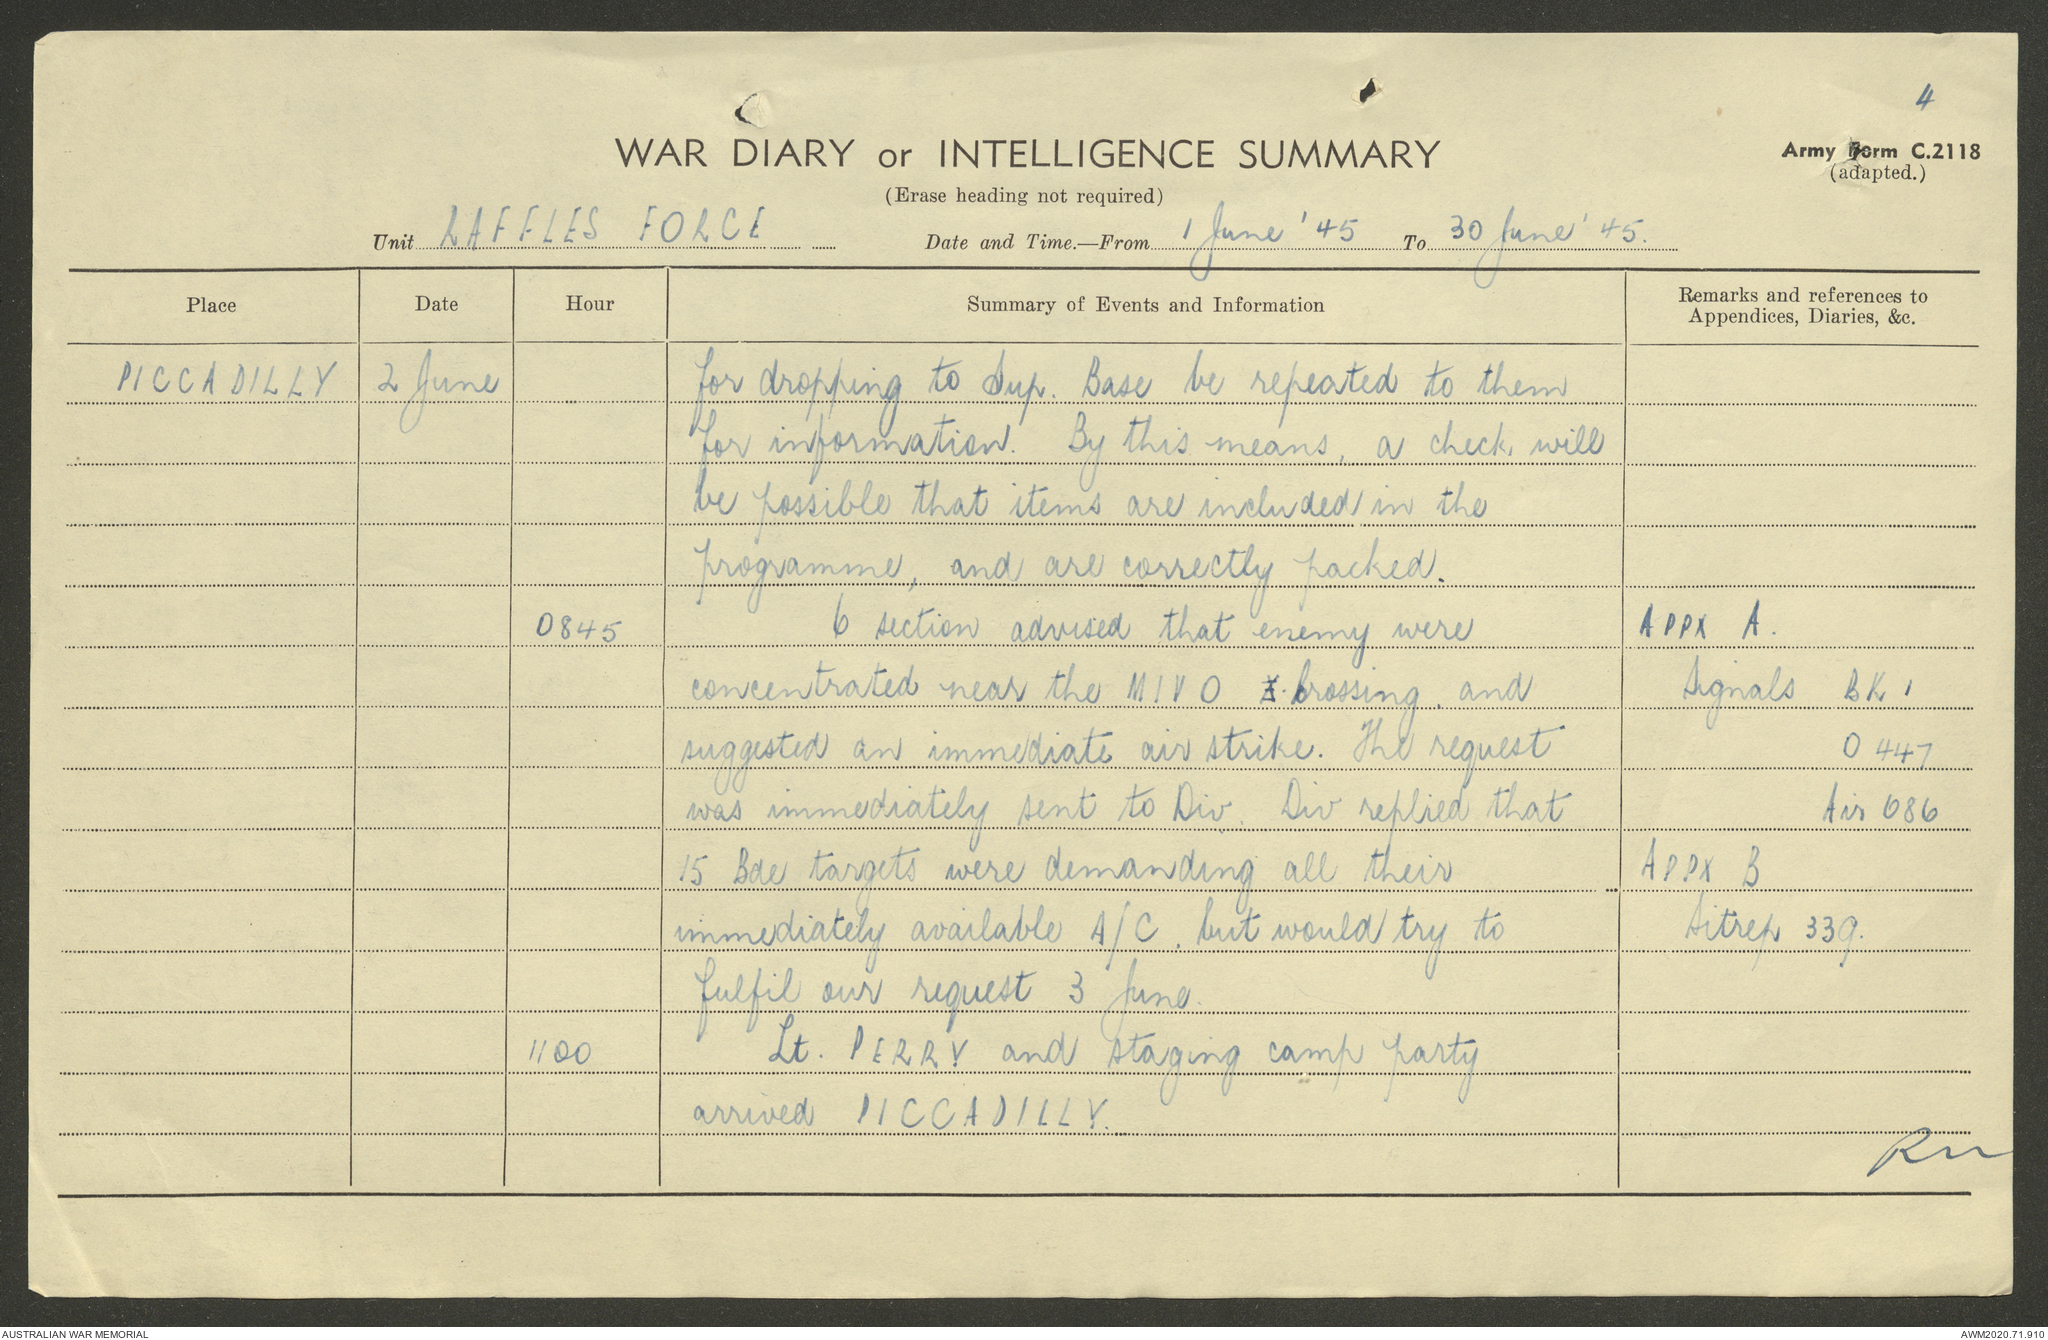 4
WAR DIARY or INTELLIGENCE SUMMARY
Army Form C.2118
(adapted.)
(Erase heading not required)
Unit RAFFLES FORCE Date and Time.—From 1 June '45 To 30 June '45.
Place Date Hour Summary of Events and Information Remarks and references to Appendices, Diaries, &c.
PICCADILLY 2 June for dropping to Sup. Base be repeated to them
for information. By this means, a check will
be possible that items are included in the
programme, and are correctly packed.
0845 6 section advised that enemy were APPX A.
concentrated near the MIVO Crossing, and Signals BK 1
suggested an immediate air strike. The request O 447
was immediately sent to Div. Div replied that Air 086
15 Bde targets were demanding all their APPX B
immediately available A/C, but would try to Sitrep 339.
fulfil our request 3 June.
1100 Lt. PERRY and staging camp party
arrived PICCADILLY.
AUSTRALIAN WAR MEMORIAL
AWM2020.71.910